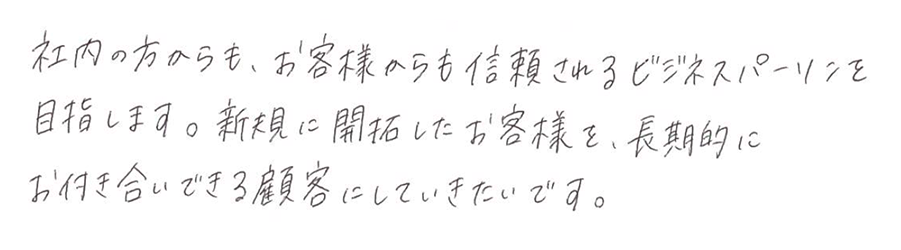 社内の方からも、お客様からも信頼されるビジネスパーソンを
目指します。新規に開拓したお客様を、長期的に
お付き合いできる顧客にしていきたいです。